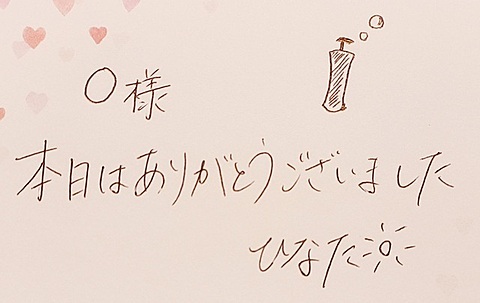 〇様
本日はありがとうございました
ひなた